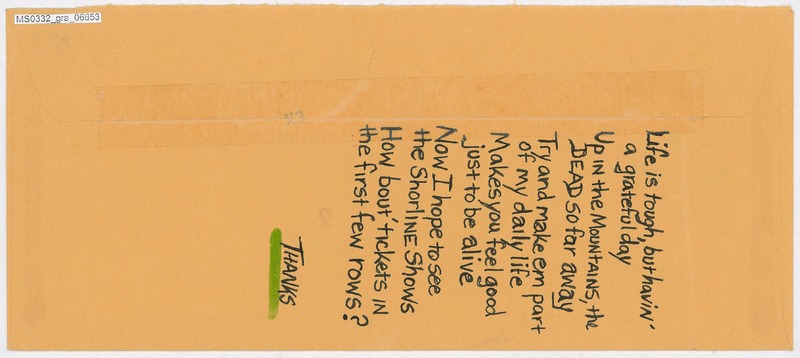 MS0332_gra_06653
Life is tough, but havin'
a grateful day
Up in the Mountains, the
DEAD so far away
Try and make em part
of my daily life
Makes you feel good
just to be alive
Now I hope to see
the Shorline Shows
How bout' tickets in
the first few rows?
THANKS